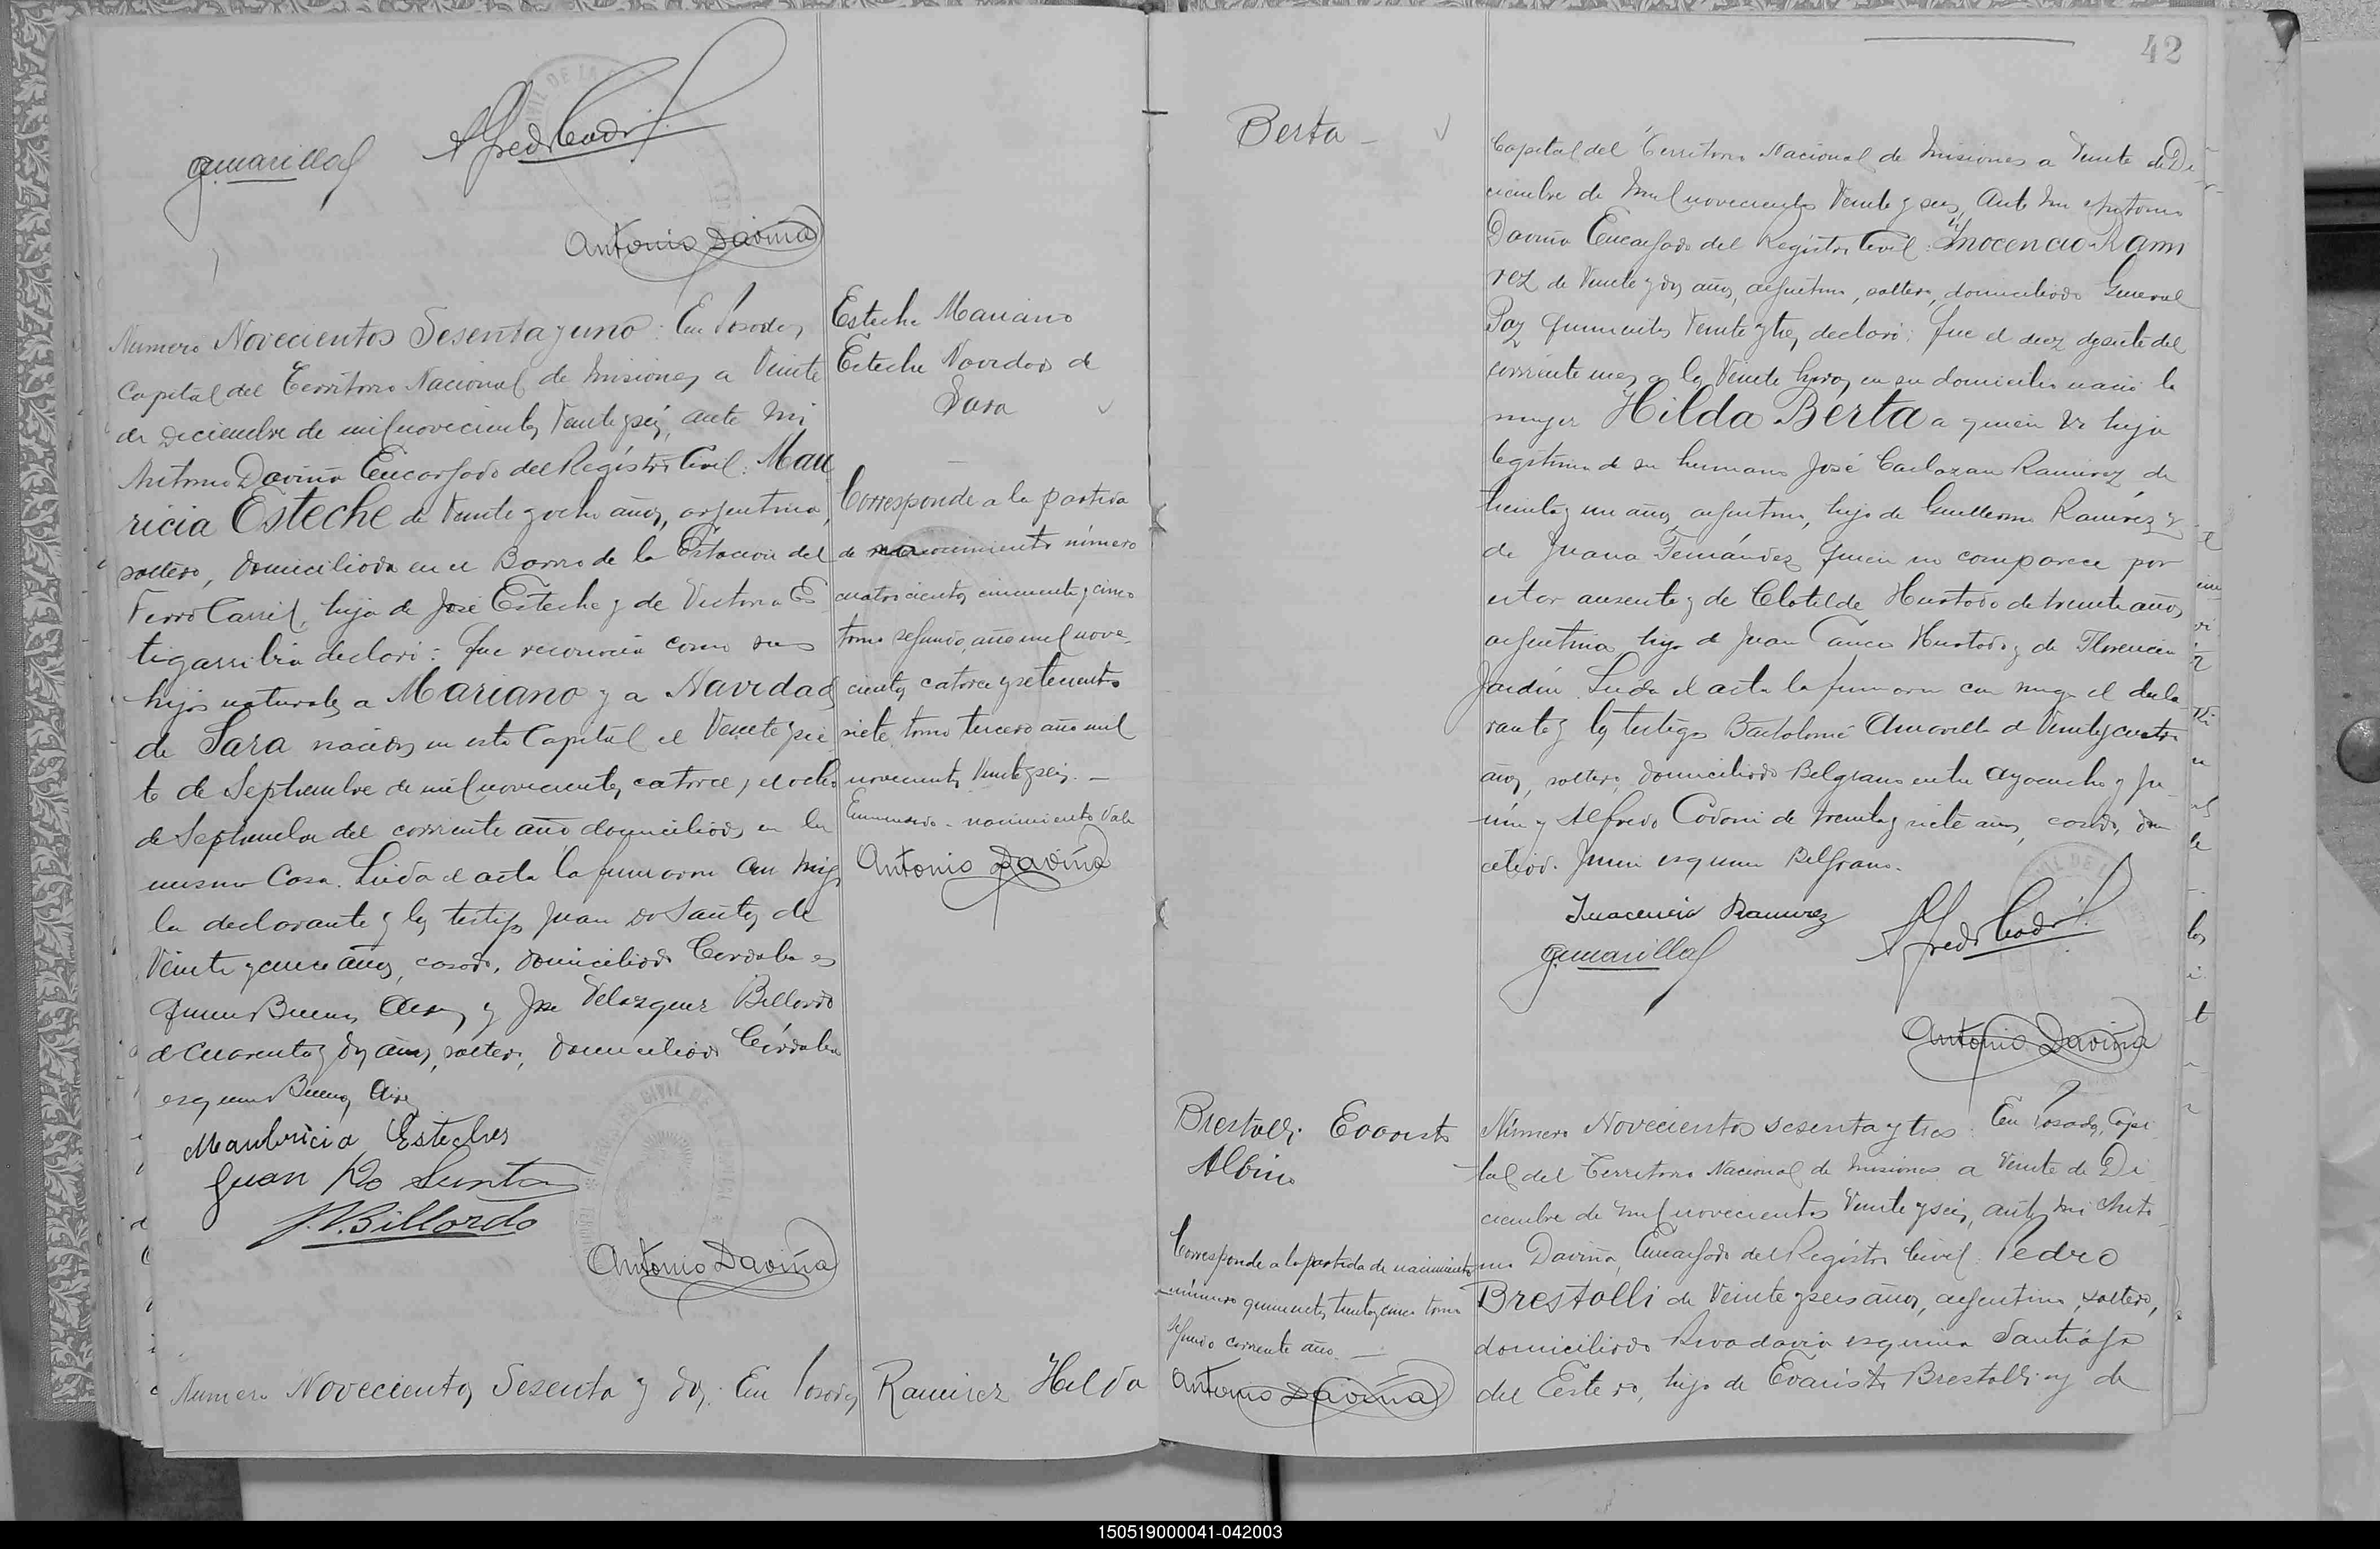 Amarilla
Alfredo Codoni
Antonio Daviña
Numero Novecientos Sesenta y uno: En Posadas
Capital del Territorio Nacional de Misiones a Veinte
de Diciembre de mil novecientos Veinte y seis, ante mi
Antonio Daviña Encargado del Registro Civil: Mau
ricia Esteche de Veinte y ocho años, argentina,
soltera, domiciliada en el Barrio de la Estacion del
Ferro Carril, hija de José Esteche y de Victoria Es
tigarribia declaró: Que reconocía como sus
hijos naturales a Mariano y a Navidad
de Sara nacidos en esta Capital el Veinte y sie
te de Septiembre de mil novecientos catorce y el ocho
de Septiembre del corriente año domiciliados en la
misma Casa. Leida el acta la firmaron con migo
la declarante y los testigos Juan Do Santos de
Veinte y cinco años, casado, domiciliado Cordoba es
quina Buenos Aires y José Velazquez Billordo
de Cuarenta y dos años, soltero, domiciliado Córdoba
esquina Buenos Aires
Maubricia Esteches
Juan Do Santo
J.V. Billordo
Antonio Daviña
Numero Novecientos Sesenta y dos: En Posadas
Esteche Mariano
Esteche Navidad de
Sara
Corresponde a la partida
de nacimiento número
cuatrocientos cincuenta y cinco
tomo segundo, año mil nove-
cientos catorce y setecientos
siete tomo tercero año mil
novecientos Veinte y seis. —
Enmendado - nacimiento Vale
Antonio Daviña
Ramirez Hilda
42
Berta -
Capital del Territorio Nacional de Misiones a Veinte de Di-
ciembre de Mil novecientos Veinte y seis, Ante mi Antonio
Daviña Encargado del Registro Civil: Inocencio Rami
rez de Veinte y dos años, argentino, soltero, domiciliado General
Paz quinientos Veinte y tres, declaró: Que el diez y siete del
corriente mes a las Veinte horas, en su domicilio nació la
mujer Hilda Berta a quien vi hija
legitima de su hermano José Ramirez de
treinta y un años, argentino, hijo de Guillermo Ramírez y
de Juana Fernández quien no comparece por
estar ausente y de Clotilde Hurtado de treinta años,
argentina hija de Juan Hurtado y de Florencia
Jardin. Leida el acta la firmaron con migo el decla
rante y los testigos Bartolomé Amarilla de Veinte y cuatro
años, soltero, domiciliado Belgrano entre Ayacucho y Ju-
nin y Alfredo Codoni de treinta y siete años, casado, domi
ciliado Junin esquina Belgrano.
Inocencio Ramirez
Amarilla
Alfredo Codoni
Antonio Daviña
Brestolli Evaristo
Albino
Corresponde a la partida de nacimiento
número quinientos treinta y cinco tomo
segundo corriente año. —
Antonio Daviña
Número Novecientos sesenta y tres: En Posadas, Capi
tal del Territorio Nacional de Misiones a Veinte de Di
ciembre de Mil novecientos Veinte y seis, ante mi Anto
nio Daviña, Encargado del Registro Civil: Pedro
Brestolli de Veinte y seis años, argentino, soltero,
domiciliado Rivadavia esquina Santiago
del Estero, hijo de Evaristo Brestolli y de
150519000041-042003